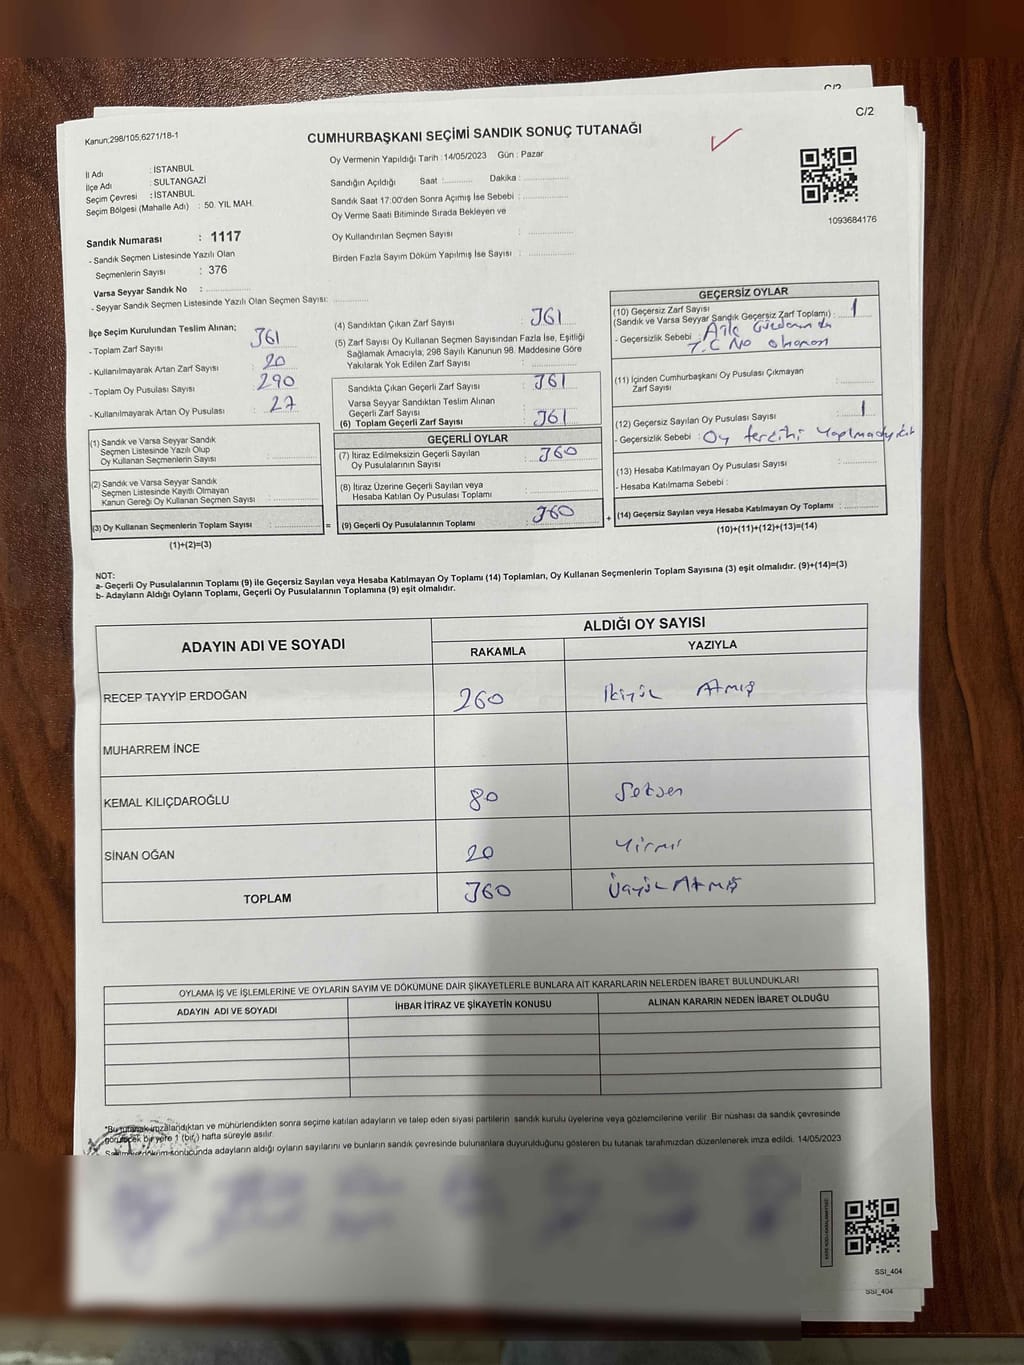 C/2
C/2
Kanun:298/105,6271/18-1
CUMHURBAŞKANI SEÇİMİ SANDIK SONUÇ TUTANAĞI
İl Adı : İSTANBUL
İlçe Adı : SULTANGAZİ
Seçim Çevresi : İSTANBUL
Seçim Bölgesi (Mahalle Adı) : 50. YIL MAH.
Sandık Numarası : 1117
- Sandık Seçmen Listesinde Yazılı Olan
Seçmenlerin Sayısı : 376
Varsa Seyyar Sandık No :
- Seyyar Sandık Seçmen Listesinde Yazılı Olan Seçmen Sayısı:
Oy Vermenin Yapıldığı Tarih : 14/05/2023 Gün : Pazar
Sandığın Açıldığı Saat : Dakika :
Sandık Saat 17:00'den Sonra Açımış İse Sebebi :
Oy Verme Saati Bitiminde Sırada Bekleyen ve
Oy Kullandırılan Seçmen Sayısı :
Birden Fazla Sayım Döküm Yapılmış İse Sayısı :
1093684176
İlçe Seçim Kurulundan Teslim Alınan;
- Toplam Zarf Sayısı : 361
- Kullanılmayarak Artan Zarf Sayısı : 20
- Toplam Oy Pusulası Sayısı : 290
- Kullanılmayarak Artan Oy Pusulası : 27
(1) Sandık ve Varsa Seyyar Sandık
Seçmen Listesinde Yazılı Olup
Oy Kullanan Seçmenlerin Sayısı :
(2) Sandık ve Varsa Seyyar Sandık
Seçmen Listesinde Kayıtlı Olmayan
Kanun Gereği Oy Kullanan Seçmen Sayısı :
(3) Oy Kullanan Seçmenlerin Toplam Sayısı : =
(1)+(2)=(3)
(4) Sandıktan Çıkan Zarf Sayısı : 361
(5) Zarf Sayısı Oy Kullanan Seçmen Sayısından Fazla İse, Eşitliği
Sağlamak Amacıyla; 298 Sayılı Kanunun 98. Maddesine Göre
Yakılarak Yok Edilen Zarf Sayısı :
Sandıkta Çıkan Geçerli Zarf Sayısı : 361
Varsa Seyyar Sandıktan Teslim Alınan
Geçerli Zarf Sayısı :
(6) Toplam Geçerli Zarf Sayısı : 361
GEÇERLİ OYLAR
(7) İtiraz Edilmeksizin Geçerli Sayılan
Oy Pusulalarının Sayısı : 360
(8) İtiraz Üzerine Geçerli Sayılan veya
Hesaba Katılan Oy Pusulası Toplamı :
(9) Geçerli Oy Pusulalarının Toplamı : 360 +
GEÇERSİZ OYLAR
(10) Geçersiz Zarf Sayısı
(Sandık ve Varsa Seyyar Sandık Geçersiz Zarf Toplamı) : 1
- Geçersizlik Sebebi : Aile
T.C No
(11) İçinden Cumhurbaşkanı Oy Pusulası Çıkmayan
Zarf Sayısı :
(12) Geçersiz Sayılan Oy Pusulası Sayısı : 1
- Geçersizlik Sebebi : Oy tercihi
(13) Hesaba Katılmayan Oy Pusulası Sayısı :
- Hesaba Katılmama Sebebi :
(14) Geçersiz Sayılan veya Hesaba Katılmayan Oy Toplamı :
(10)+(11)+(12)+(13)=(14)
NOT:
a- Geçerli Oy Pusulalarının Toplamı (9) ile Geçersiz Sayılan veya Hesaba Katılmayan Oy Toplamı (14) Toplamları, Oy Kullanan Seçmenlerin Toplam Sayısına (3) eşit olmalıdır. (9)+(14)=(3)
b- Adayların Aldığı Oyların Toplamı, Geçerli Oy Pusulalarının Toplamına (9) eşit olmalıdır.
ADAYIN ADI VE SOYADI
ALDIĞI OY SAYISI
RAKAMLA YAZIYLA
RECEP TAYYİP ERDOĞAN 260 İkiyüz Atmış
MUHARREM İNCE
KEMAL KILIÇDAROĞLU 80 Seksen
SİNAN OĞAN 20 Yirmi
TOPLAM 360 Üçyüz Atmış
OYLAMA İŞ VE İŞLEMLERİNE VE OYLARIN SAYIM VE DÖKÜMÜNE DAİR ŞİKAYETLERLE BUNLARA AİT KARARLARIN NELERDEN İBARET BULUNDUKLARI
ADAYIN ADI VE SOYADI İHBAR İTİRAZ VE ŞİKAYETİN KONUSU ALINAN KARARIN NEDEN İBARET OLDUĞU
*Bu tutanak imzalandıktan ve mühürlendikten sonra seçime katılan adayların ve talep eden siyasi partilerin sandık kurulu üyelerine veya gözlemcilerine verilir. Bir nüshası da sandık çevresinde
görülecek bir yere 1 (bir) hafta süreyle asılır.
sonucunda adayların aldığı oyların sayılarını ve bunların sandık çevresinde bulunanlara duyurulduğunu gösteren bu tutanak tarafımızdan düzenlenerek imza edildi. 14/05/2023
SSI_404
SSI_404